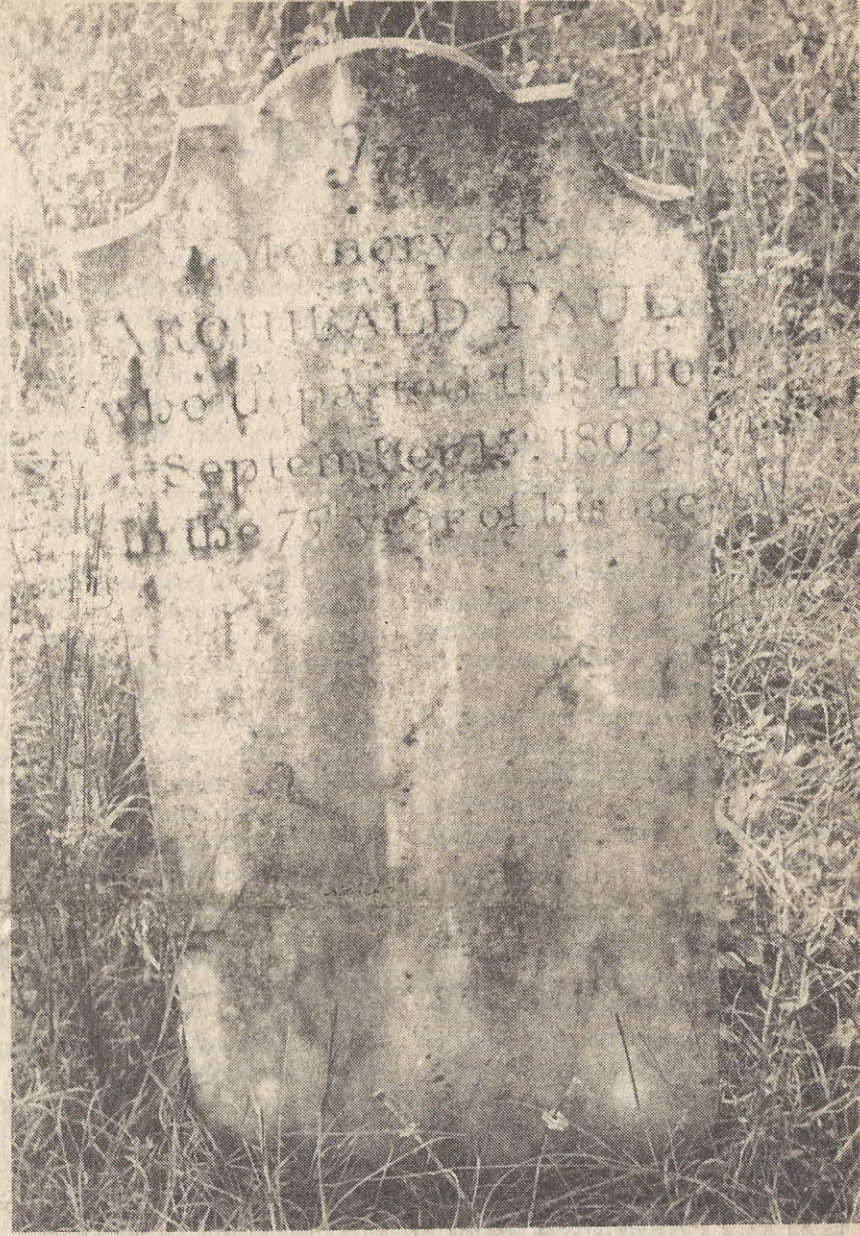 In
Memory of
ARCHIBALD PAUL
who departed this life
September 1892
in the 75 year of his age